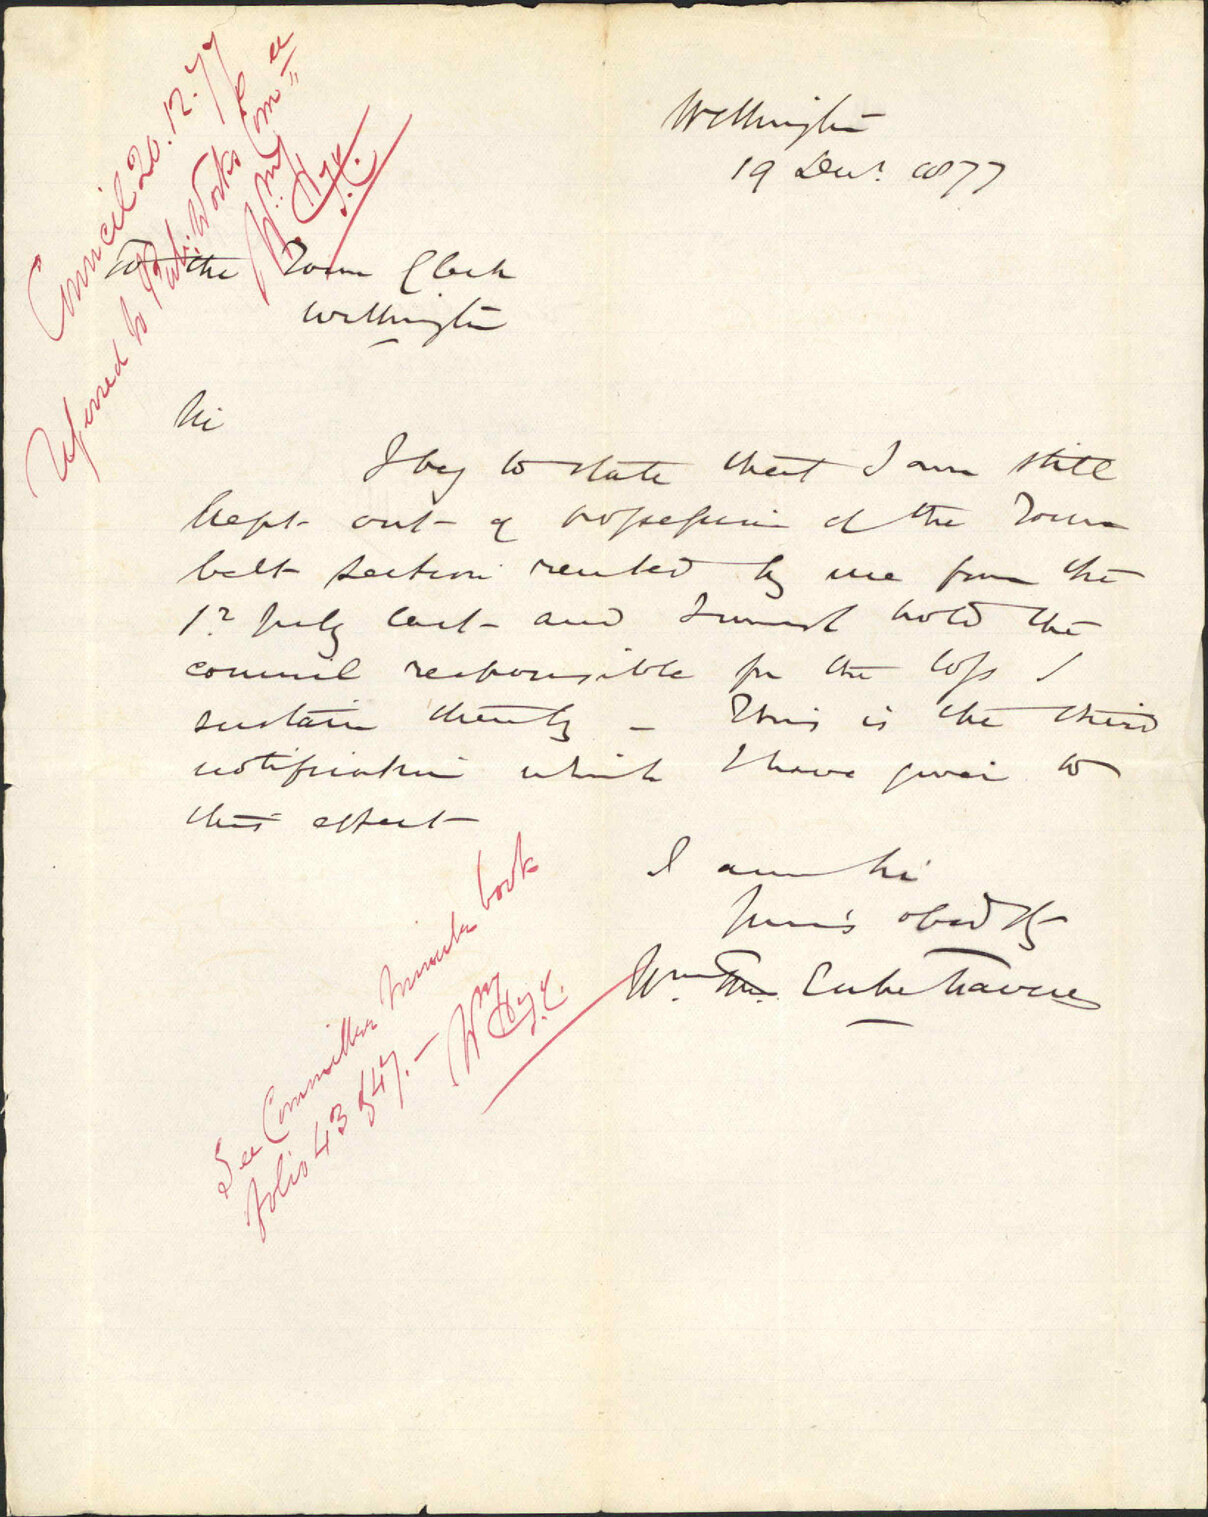 Council 20.12.77
Referred to Pub. Works Com ee
Wm Hy
T.C.
Wellington
19 Decr. 1877
To the Town Clerk
Wellington
Sir
I beg to state that I am still
kept out of possession of the Town
belt section rented by me from the
1st July last and I must hold the
council responsible for the loss I
sustain thereby – This is the third
notification which I have given to
this effect
I am Sir
Yours obedtly
Wm.
See Committee Minute book
folio 43 & 47. –
Wm Hy
T.C.